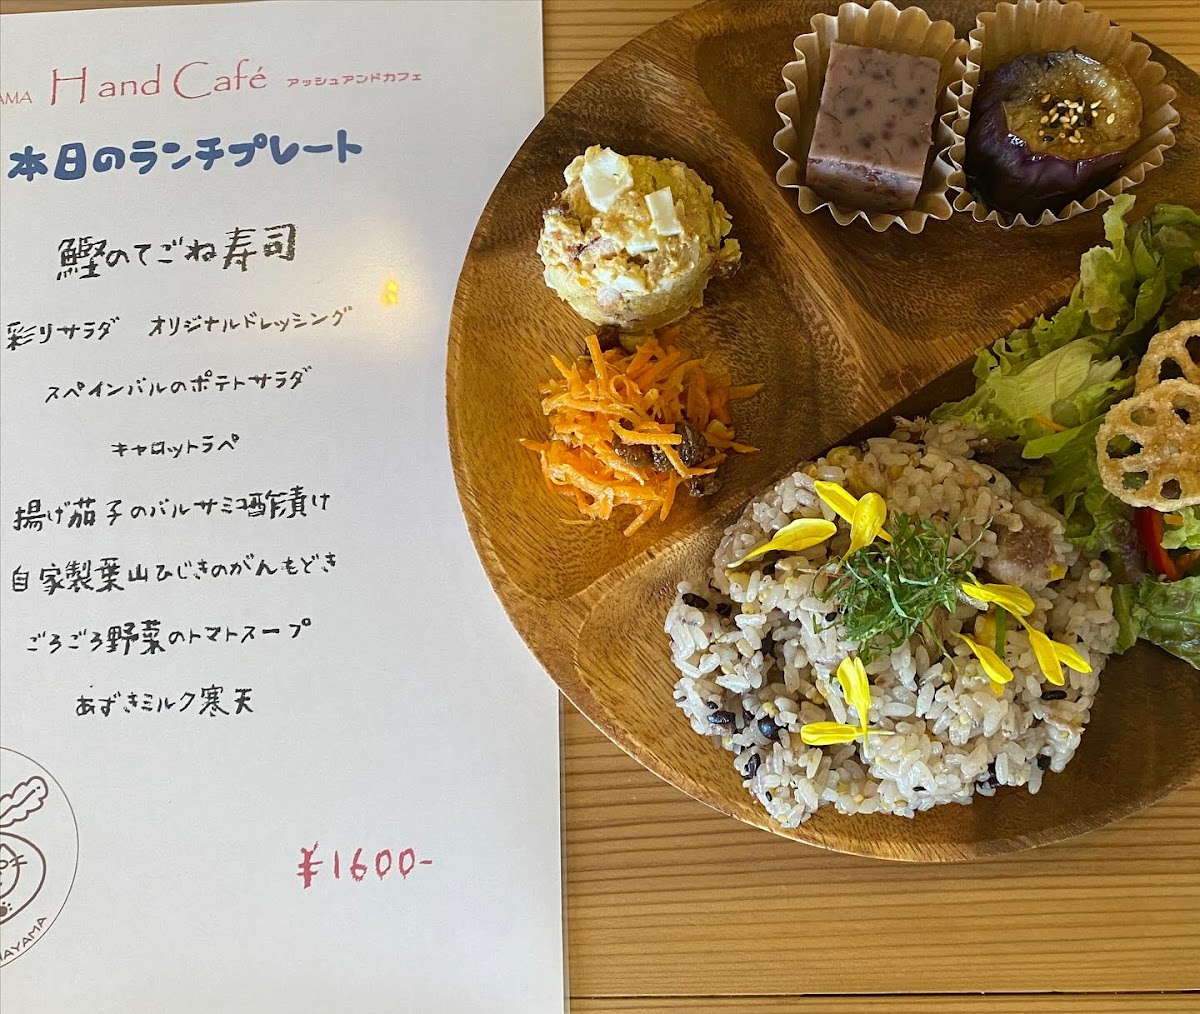 AMA H and Café アッシュアンドカフェ
本日のランチプレート
鰹のてごね寿司
彩りサラダ オリジナルドレッシング
スペインバルのポテトサラダ
キャロットラペ
揚げ茄子のバルサミコ酢漬け
自家製葉山ひじきのがんもどき
ごろごろ野菜のトマトスープ
あずきミルク寒天
¥1600-
HAYAMA